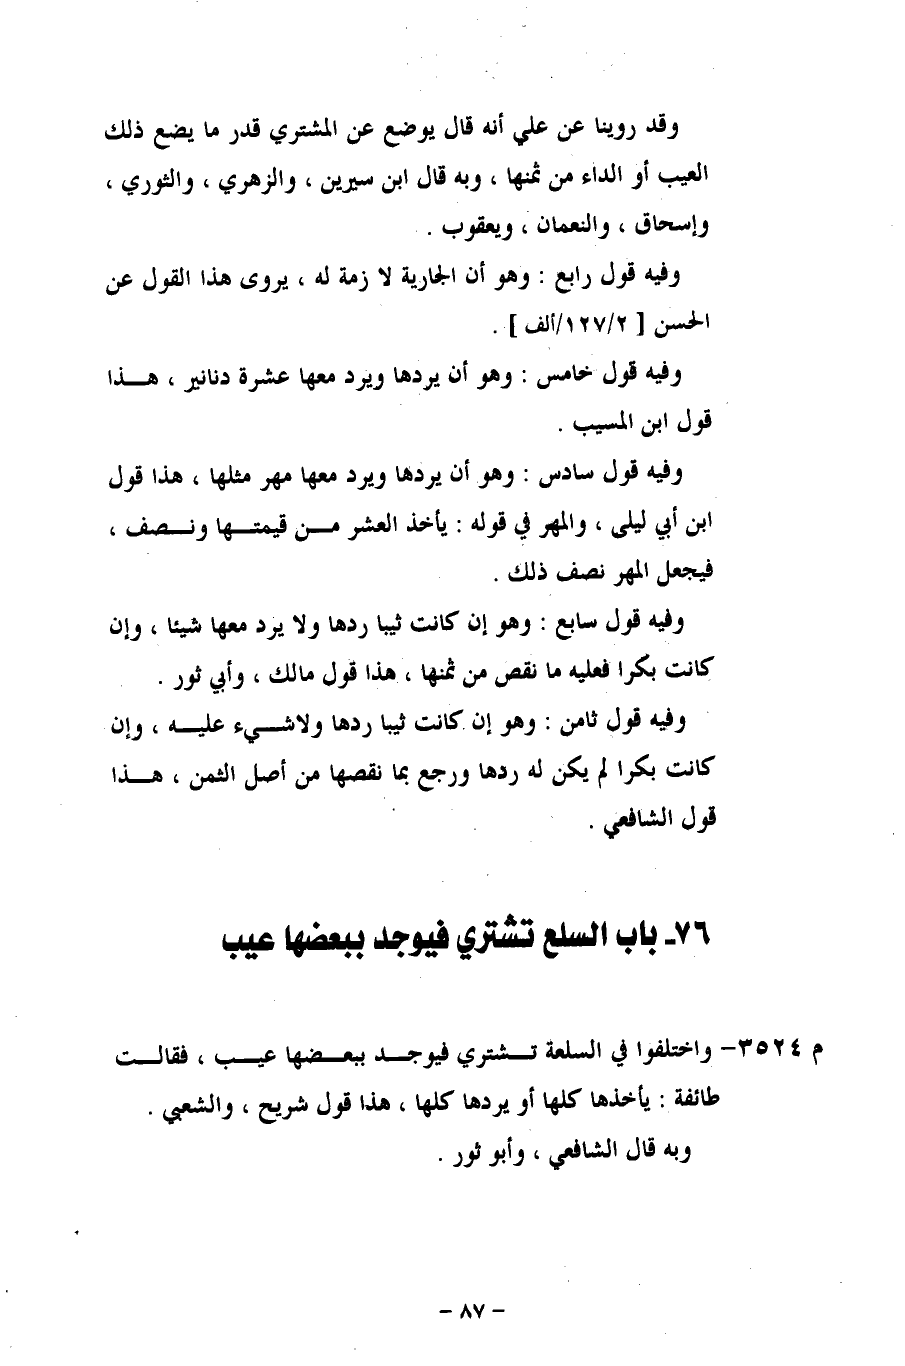 وقد روينا عن علي أنه قال يوضع عن المشتري قدر ما يضع ذلك
العيب أو الداء من ثمنها ، وبه قال ابن سيرين ، والزهري ، والثوري ،
وإسحاق ، والنعمان ، ويعقوب .
وفيه قول رابع : وهو أن الجارية لا زمة له ، يروى هذا القول عن
الحسن [ ١٢٧/٢/ألف ] .
وفيه قول خامس : وهو أن يردها ويرد معها عشرة دنانير ، هـــذا
قول ابن المسيب .
وفيه قول سادس : وهو أن يردها ويرد معها مهر مثلها ، هذا قول
ابن أبي ليلى ، والمهر في قوله : يأخذ العشر مــن قيمتــها ونــصف ،
فيجعل المهر نصف ذلك .
وفيه قول سابع : وهو إن كانت ثيبا ردها ولا يرد معها شيئا ، وإن
كانت بكرا فعليه ما نقص من ثمنها ، هذا قول مالك ، وأبي ثور .
وفيه قول ثامن : وهو إن كانت ثيبا ردها ولاشــيء عليــه ، وإن
كانت بكرا لم يكن له ردها ورجع بما نقصها من أصل الثمن ، هـــذا
قول الشافعي .
٧٦ـ باب السلع تشتري فيوجد ببعضها عيب
م ٣٥٢٤– واختلفوا في السلعة تــشتري فيوجــد ببعــضها عيــب ، فقالــت
طائفة : يأخذها كلها أو يردها كلها ، هذا قول شريح ، والشعبي .
وبه قال الشافعي ، وأبو ثور .
– ٨٧ –